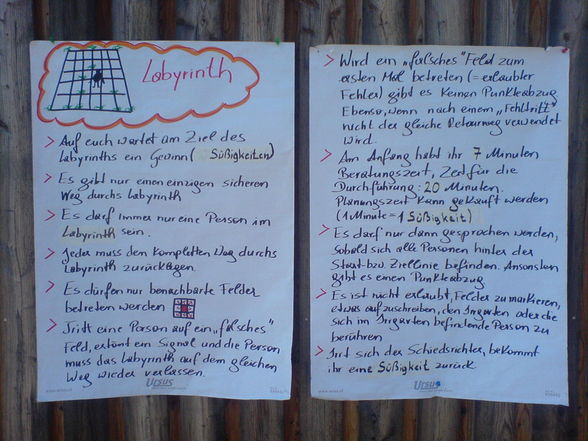 Labyrinth
> Auf euch wartet am Ziel des
Labyrinths ein Gewinn (Süßigkeiten)
> Es gibt nur einen einzigen sicheren
Weg durchs Labyrinth
> Es darf immer nur eine Person im
Labyrinth sein.
> Jeder muss den kompletten Weg durchs
Labyrinth zurücklegen
> Es dürfen nur benachbarte Felder
betreten werden
> Tritt eine Person auf ein „falsches"
Feld, ertönt ein Signal und die Person
muss das Labyrinth auf dem gleichen
Weg wieder verlassen.
Ursus
> Wird ein „falsches" Feld zum
ersten Mal betreten (= erlaubter
Fehler) gibt es keinen Punkteabzug
Ebenso, wenn nach einem „Fehltritt"
nicht der gleiche Retourweg verwendet
wird.
> Am Anfang habt ihr 7 Minuten
Beratungszeit, Zeit für die
Durchführung: 20 Minuten.
Planungszeit kann gekauft werden
(1 Minute = 1 Süßigkeit)
> Es darf nur dann gesprochen werden,
sobald sich alle Personen hinter der
Start- bzw. Ziellinie befinden. Ansonsten
gibt es einen Punkteabzug
> Es ist nicht erlaubt, Felder zu markieren,
etwas aufzuschreiben, den Irrgarten oder die
sich im Irrgarten befindende Person zu
berühren
> Irrt sich der Schiedsrichter, bekommt
ihr eine Süßigkeit zurück.
Ursus